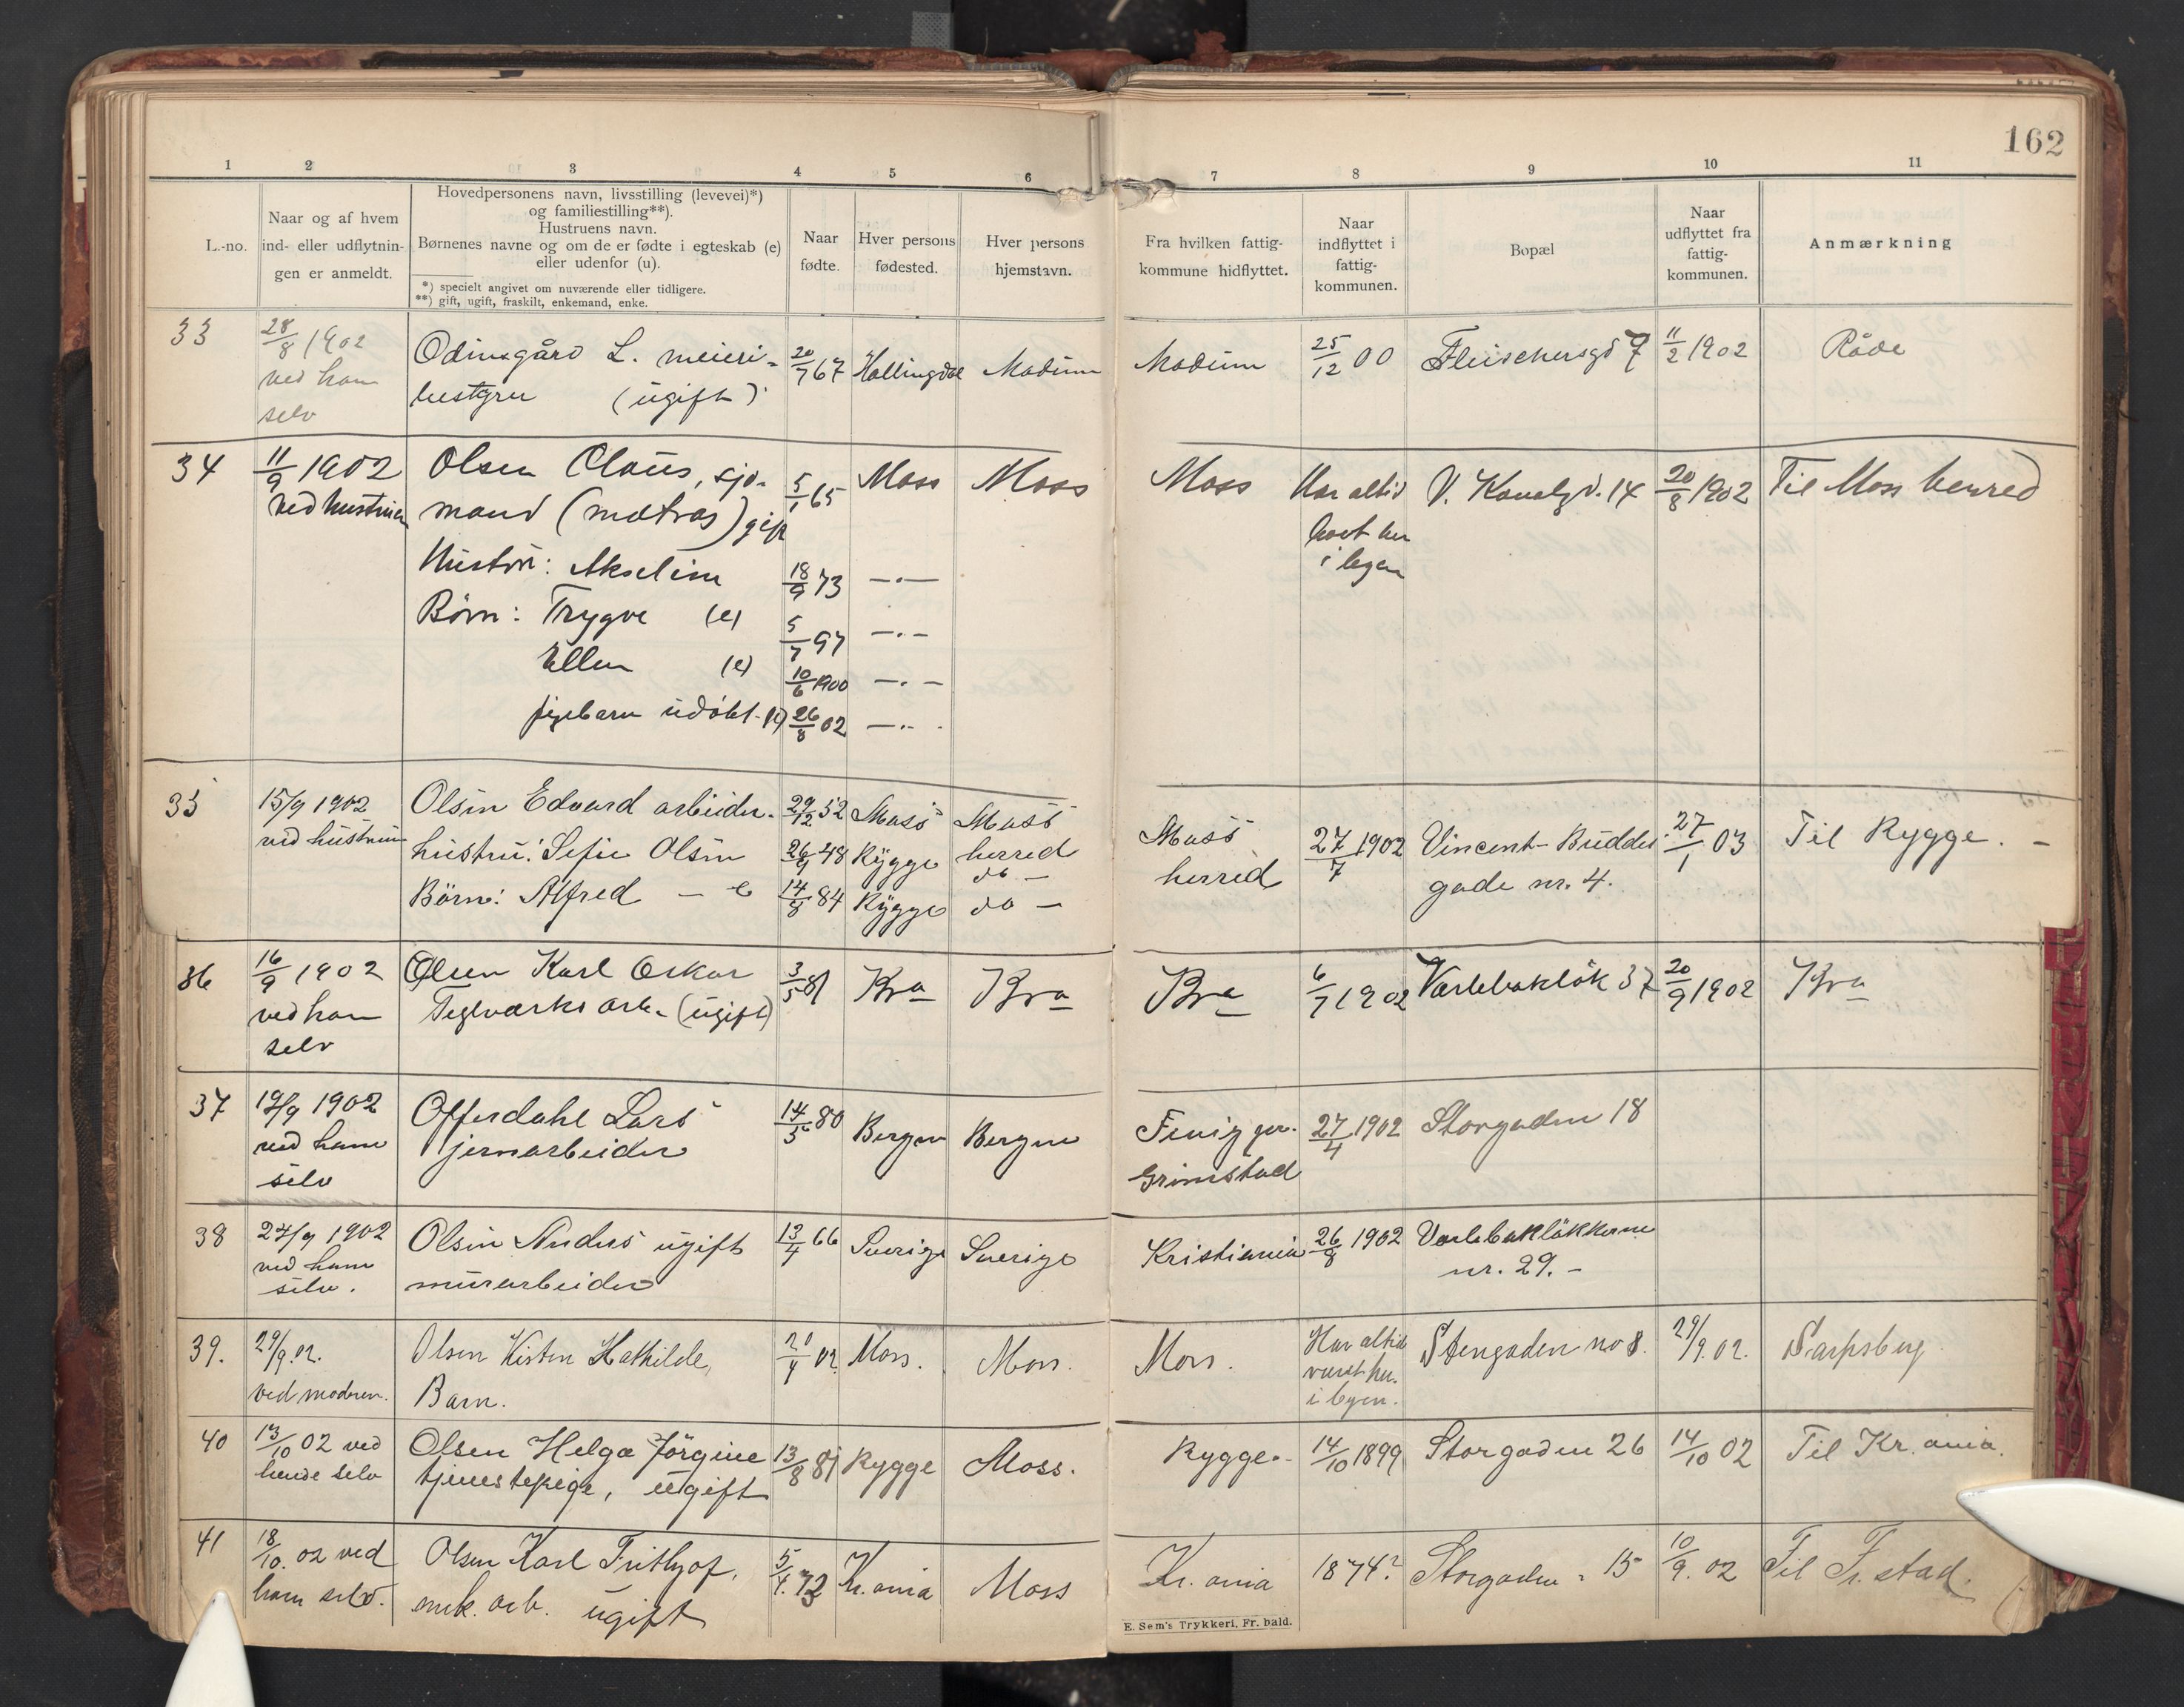 162
1 2 3 4 5 6 7 8 9 10 11
L.-no.
Naar og af hvem
ind- eller udflytnin-
gen er anmeldt.
Hovedpersonens navn, livsstilling (levevei)*)
og familiestilling**).
Hustruens navn.
Børnenes navne og om de er fødte i egteskab (e)
eller udenfor (u).
*) specielt angivet om nuværende eller tidligere.
**) gift, ugift, fraskilt, enkemand, enke.
Naar
fødte.
Hver persons
fødested.
Hver persons
hjemstavn.
Fra hvilken fattig-
kommune hidflyttet.
Naar
indflyttet i
fattig-
kommunen.
Bopæl
Naar
udflyttet fra
fattig-
kommunen.
Anmærkning
33
28/8 1902
ved ham
selv
Odinsgård L. meieri-
bestyrer (ugift)
20/7 67
Hallingdal
Modum
Modum
25/12 00
Fleischersgd 7
11/2 1902
Råde
34
11/9 1902
ved hustruen
Olsen Claus, sjø-
mand (matros) gift
5/1 65
Moss
Moss
Moss
Har altid
boet her
i byen
V. Kanalgd. 14
20/8 1902
Til Moss herred
Hustru: Akseline
18/9 73 —.—
Børn: Trygve (e)
5/7 97 —.—
Ellen (e)
10/6 1900 —.—
pigebarn udøbt (e)
26/8 02 —.—
35
15/9 1902
ved hustruen
Olsen Edvard arbeider.
29/12 52
Moss
Moss
herred
hustru: Sofie Olsen
26/9 48
Rygge
do —
Børn: Alfred — e
14/8 84
Rygge
do —
Moss
herred
27/7 1902
Vincent-Buddes
gade nr. 4.
27/1 03
Til Rygge. —
36
16/9 1902
ved ham
selv
Olsen Karl Oskar
Teglværksarb. (ugift)
3/5 81
Kra
Kra
Kra
6/7 1902
Varlebakløk 37
20/9 1902
Kra
37
19/9 1902
ved ham
selv
Offerdahl Lars
jernarbeider
14/5 80
Bergen
Bergen
Fevig pr.
Grimstad
27/4 1902
Storgaden 18
38
24/9 1902
ved ham
selv.
Olsen Anders ugift
murarbeider
13/4 66
Sverige
Sverige
Kristiania
26/8 1902
Varlebakløkkerne
nr. 29. —
39.
29/9.02.
ved moderen.
Olsen Kisten Mathilde,
Barn.
02
Moss.
Moss.
Moss.
Har altid
været her
i byen.
Stengaden no 8.
29/9.02.
Sarpsborg
40
13/10 02 ved
hende selv
Olsen Helga Jörgine
tjenestepige, ugift
13/8 81
Rygge
Moss.
Rygge.-
14/10 1899
Storgaden 26
14/10 02
Til Kr.ania.
41
18/10. 02 ved
ham selv.
Olsen Karl Frithjof,
mek. arb. ugift
5/4. 72
Kr.ania
Moss
Kr.ania
1874?
Storgaden 15
10/9. 02
Til Fr.stad.
E. Sem's Trykkeri, Fr. hald.